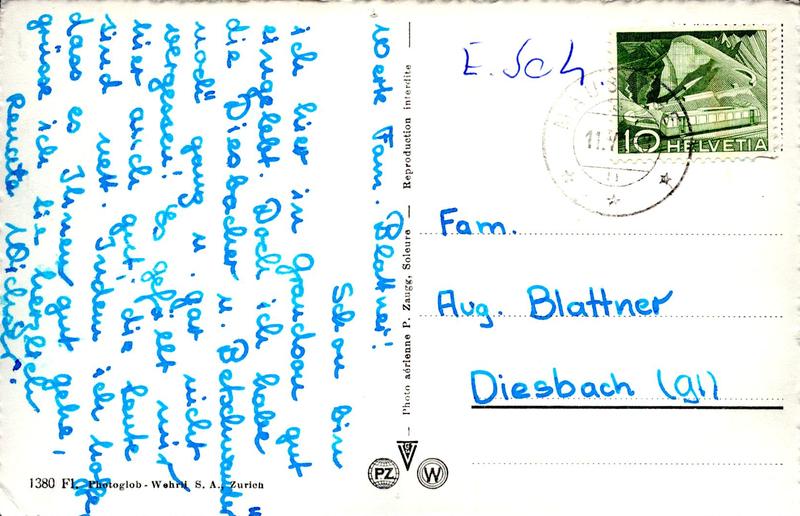 Werte Fam. Blattner!
Schon bin
ich hier in Grandson gut
eingelebt. Doch ich habe
die Diesbacher u. Betschwander
noch ganz u. gar nicht
vergessen! Es gefällt mir
hier auch gut, die Leute
sind nett. Indem ich hoffe
dass es Ihnen gut gehe,
grüsse ich Sie herzlich
Wichser.
1380 Fl. Photoglob-Wehrli S. A., Zurich
Photo aérienne P. Zaugg, Soleure — Reproduction interdite
PZ
W
E. Sch.
10 HELVETIA
11.V
Fam.
Aug. Blattner
Diesbach (gl)